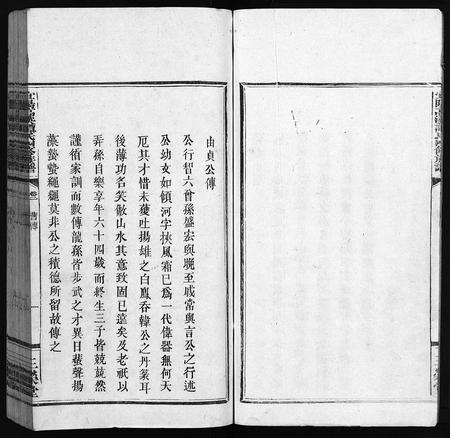 由貞公傳
公行智六曾孫盛宏與驥至戚當與言公之行述
公幼女如傾河字挾風霜已爲一代偉器無何天
厄其才惜未獲吐揚雄之白鳳吞韓公之丹篆耳
後薄功名笑傲山水其意致固已遠矣及老祇以
弄孫自樂享年六十四歲而終生三子皆兢兢然
謹循家訓而數傳龍孫皆步武之才異日蜚聲揚
藻蟄蟄繩繩莫非公之積德所留故傳之
卷一 舊傳
三槐堂